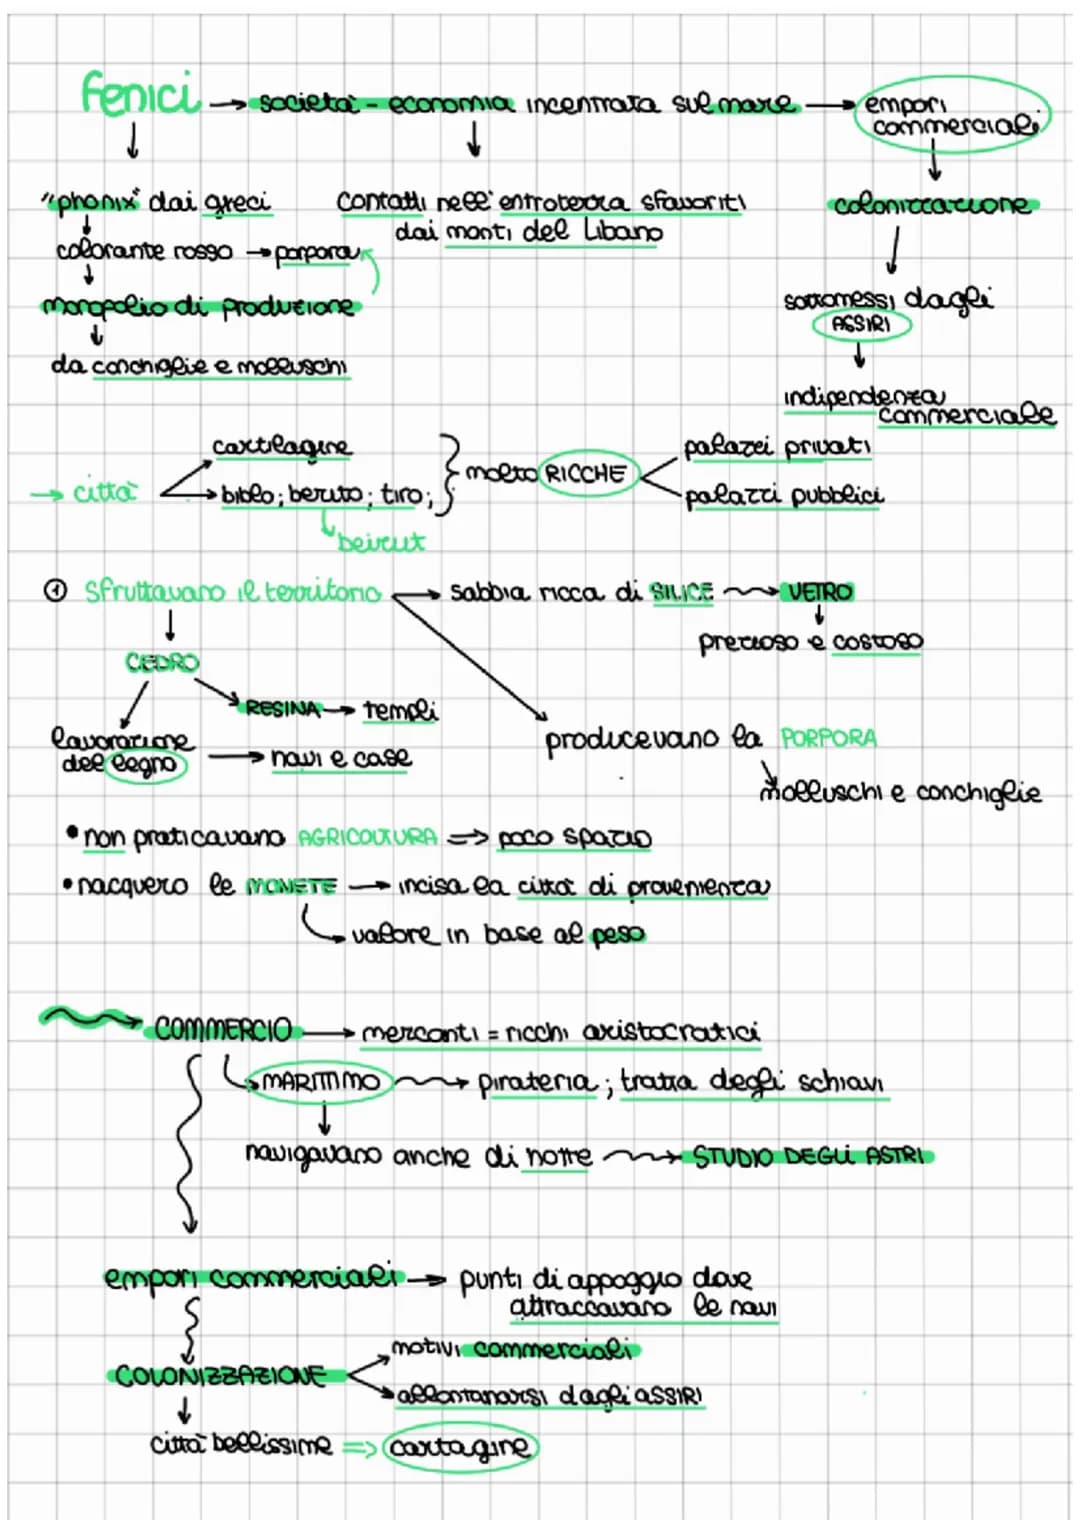 fenici → società - economia incentrata sul mare → empori
commerciali
"phonix" dai greci
contatti nell'entroterra sfavoriti
dai monti del Libano
colonizzazione
colorante rosso → porpora
monopolio di produzione
da conchiglie e molluschi
sottomessi dagli
ASSIRI
indipendenza
commerciale
→ città
cartilagine
biblo; berito; tiro;
beirut
molto RICCHE
palazzi privati
palazzi pubblici
① Sfruttavano il territorio → sabbia ricca di SILICE → VETRO
prezioso e costoso
CEDRO
RESINA → templi
lavorazione
del legno → navi e case
producevano la PORPORA
molluschi e conchiglie
• non praticavano AGRICOLTURA => poco spazio
• nacquero le MONETE → incisa la città di provenienza
valore in base al peso
COMMERCIO → mercanti = ricchi aristocratici
MARITTIMO → pirateria; tratta degli schiavi
navigavano anche di notte → STUDIO DEGLI ASTRI
empori commerciali → punti di appoggio dove
attraccavano le navi
COLONIZZAZIONE
motivi commerciali
allontanarsi dagli ASSIRI
città bellissime => cartagine